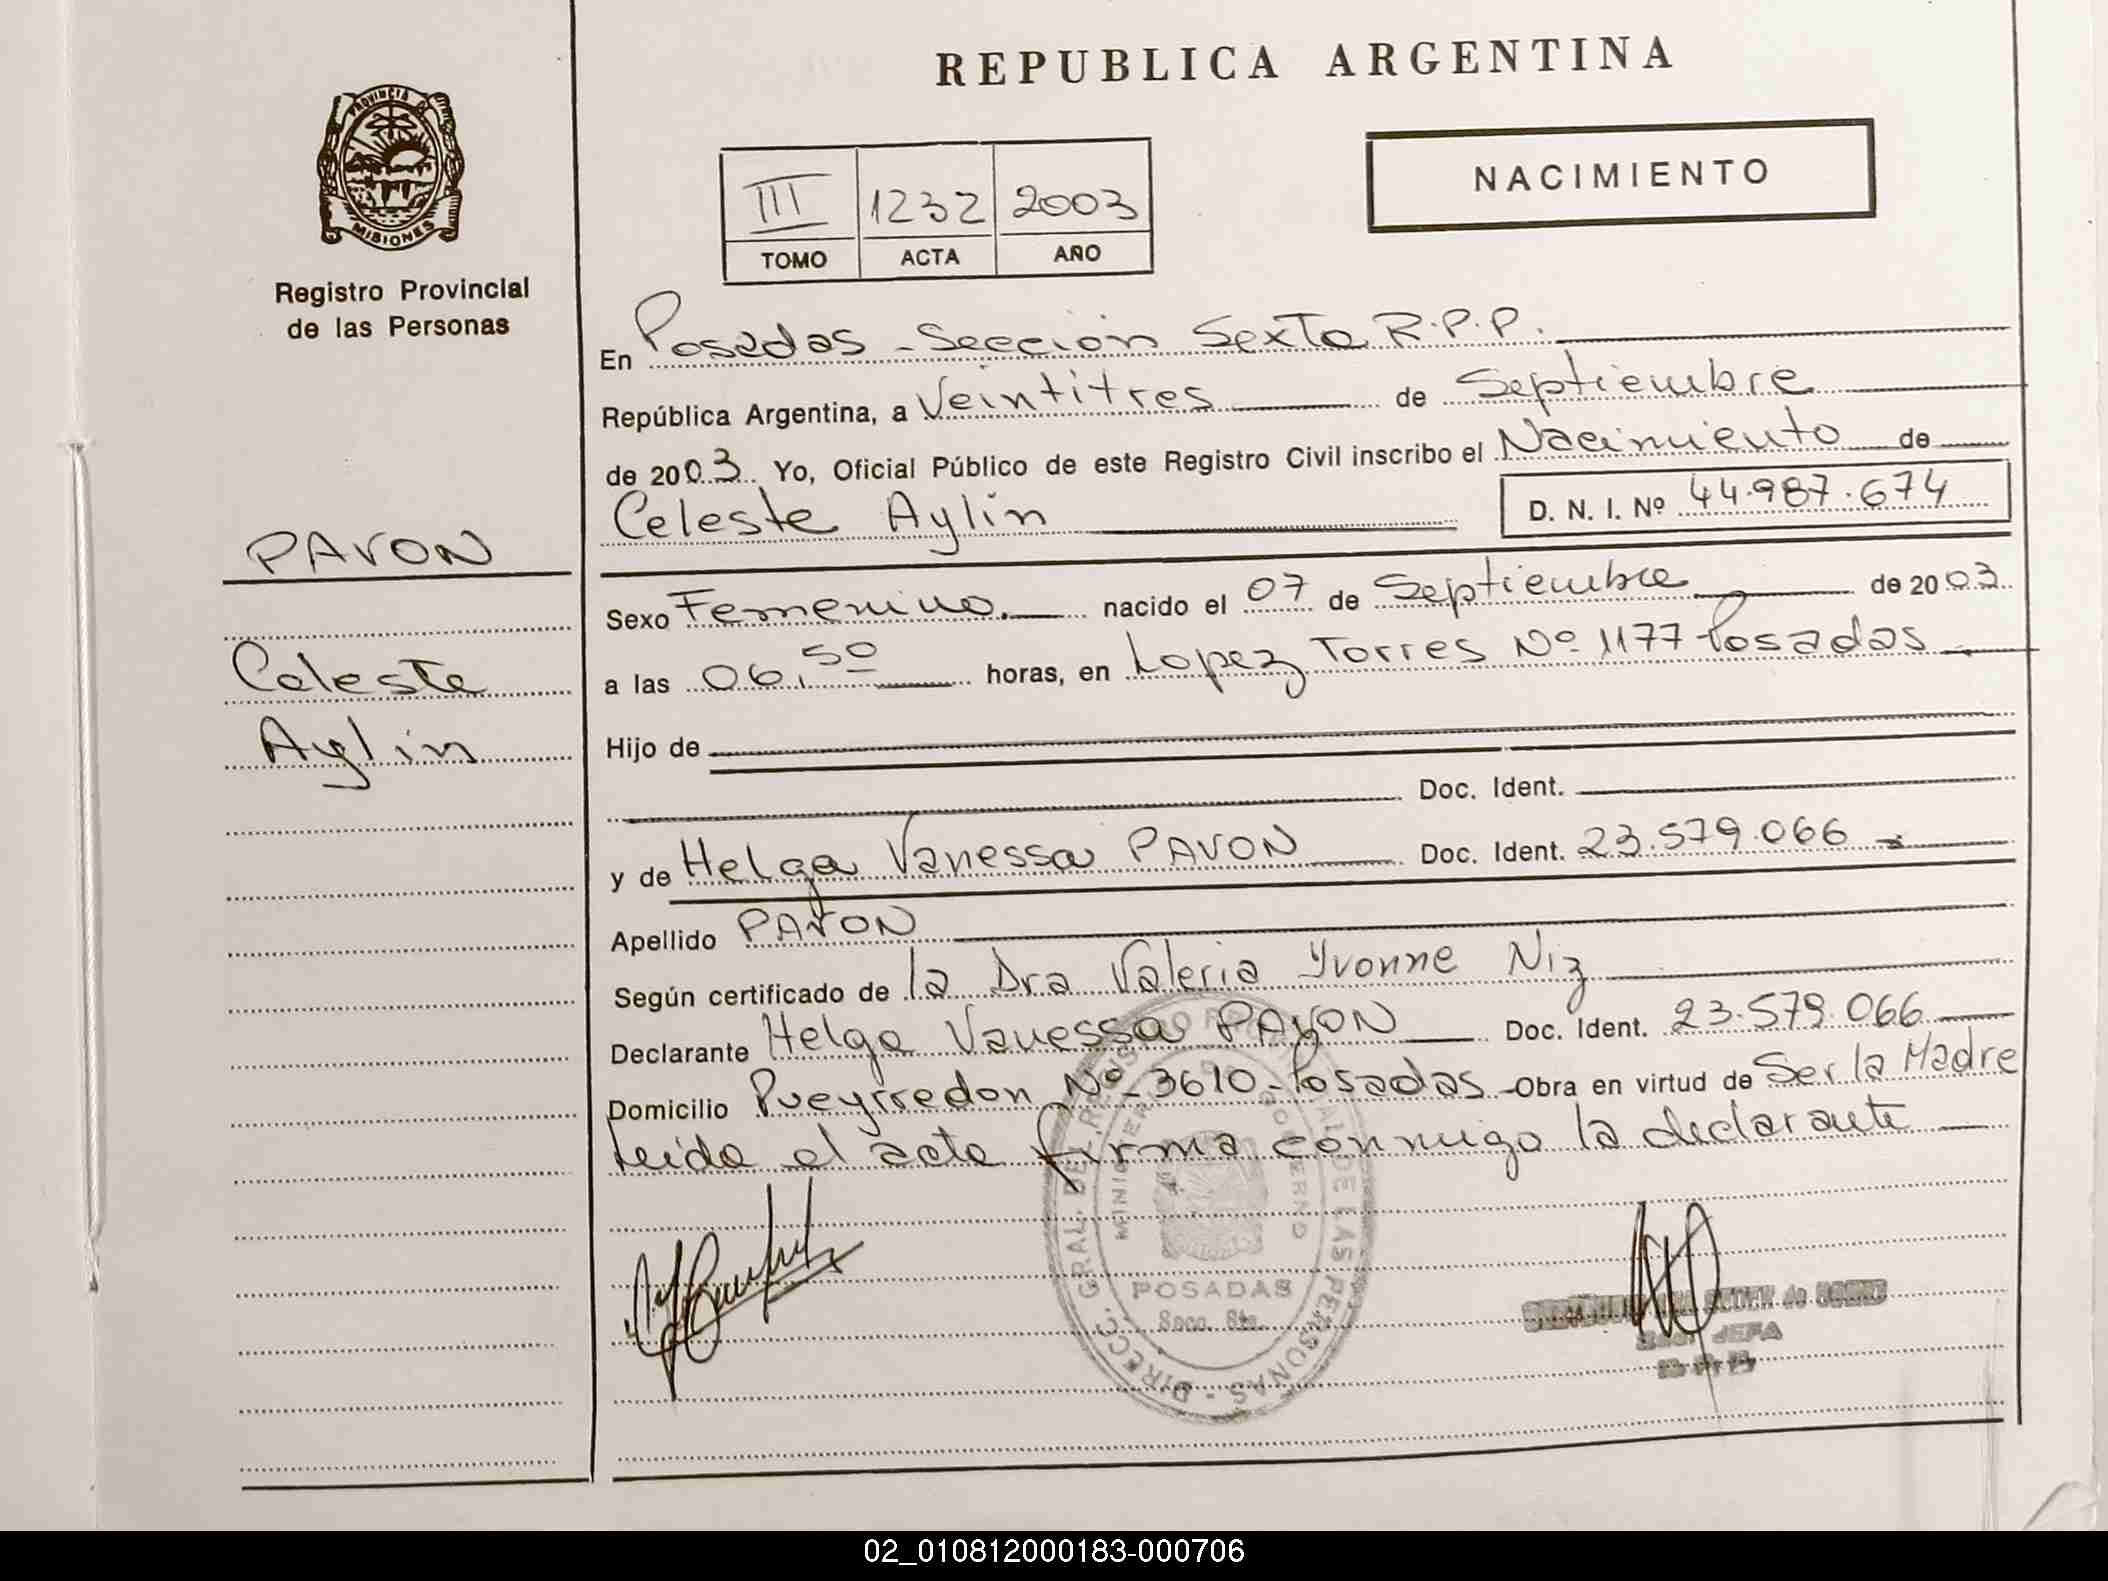 REPUBLICA ARGENTINA
PROVINCIA DE
MISIONES
Registro Provincial
de las Personas
III 1232 2003
TOMO ACTA AÑO
NACIMIENTO
En Posadas - Sección Sexta R.P.P.
República Argentina, a Veintitres de Septiembre
de 2003. Yo, Oficial Público de este Registro Civil inscribo el Nacimiento de
Celeste Aylin D. N. I. Nº 44.987.674
PAVON
Celeste
Aylin
Sexo Femenino. nacido el 07 de Septiembre de 2003.
a las 06,50 horas, en Lopez Torres Nº 1177 Posadas
Hijo de
Doc. Ident.
y de Helga Vanessa PAVON Doc. Ident. 23.579.066
Apellido PAVON
Según certificado de la Dra Valeria Yvonne Niz
Declarante Helga Vanessa PAVON Doc. Ident. 23.579.066
Domicilio Pueyrredon Nº 3610 - Posadas - Obra en virtud de Ser la Madre
leida el acta firma conmigo la declarante
DIRECC. GRAL. DEL REGISTRO PROVINCIAL DE LAS PERSONAS
GOBIERNO
POSADAS
Secc. 6ta.
JEFA
02_010812000183-000706